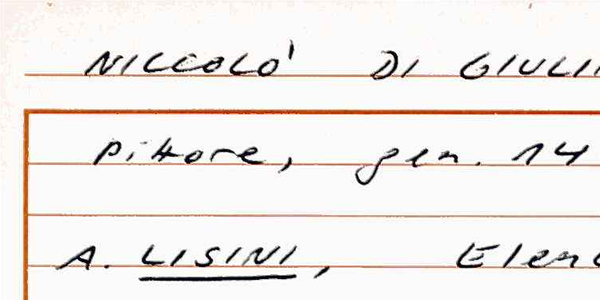 NICCOLO' DI GIULI
pittore, gen. 14
A. LISINI, Elen